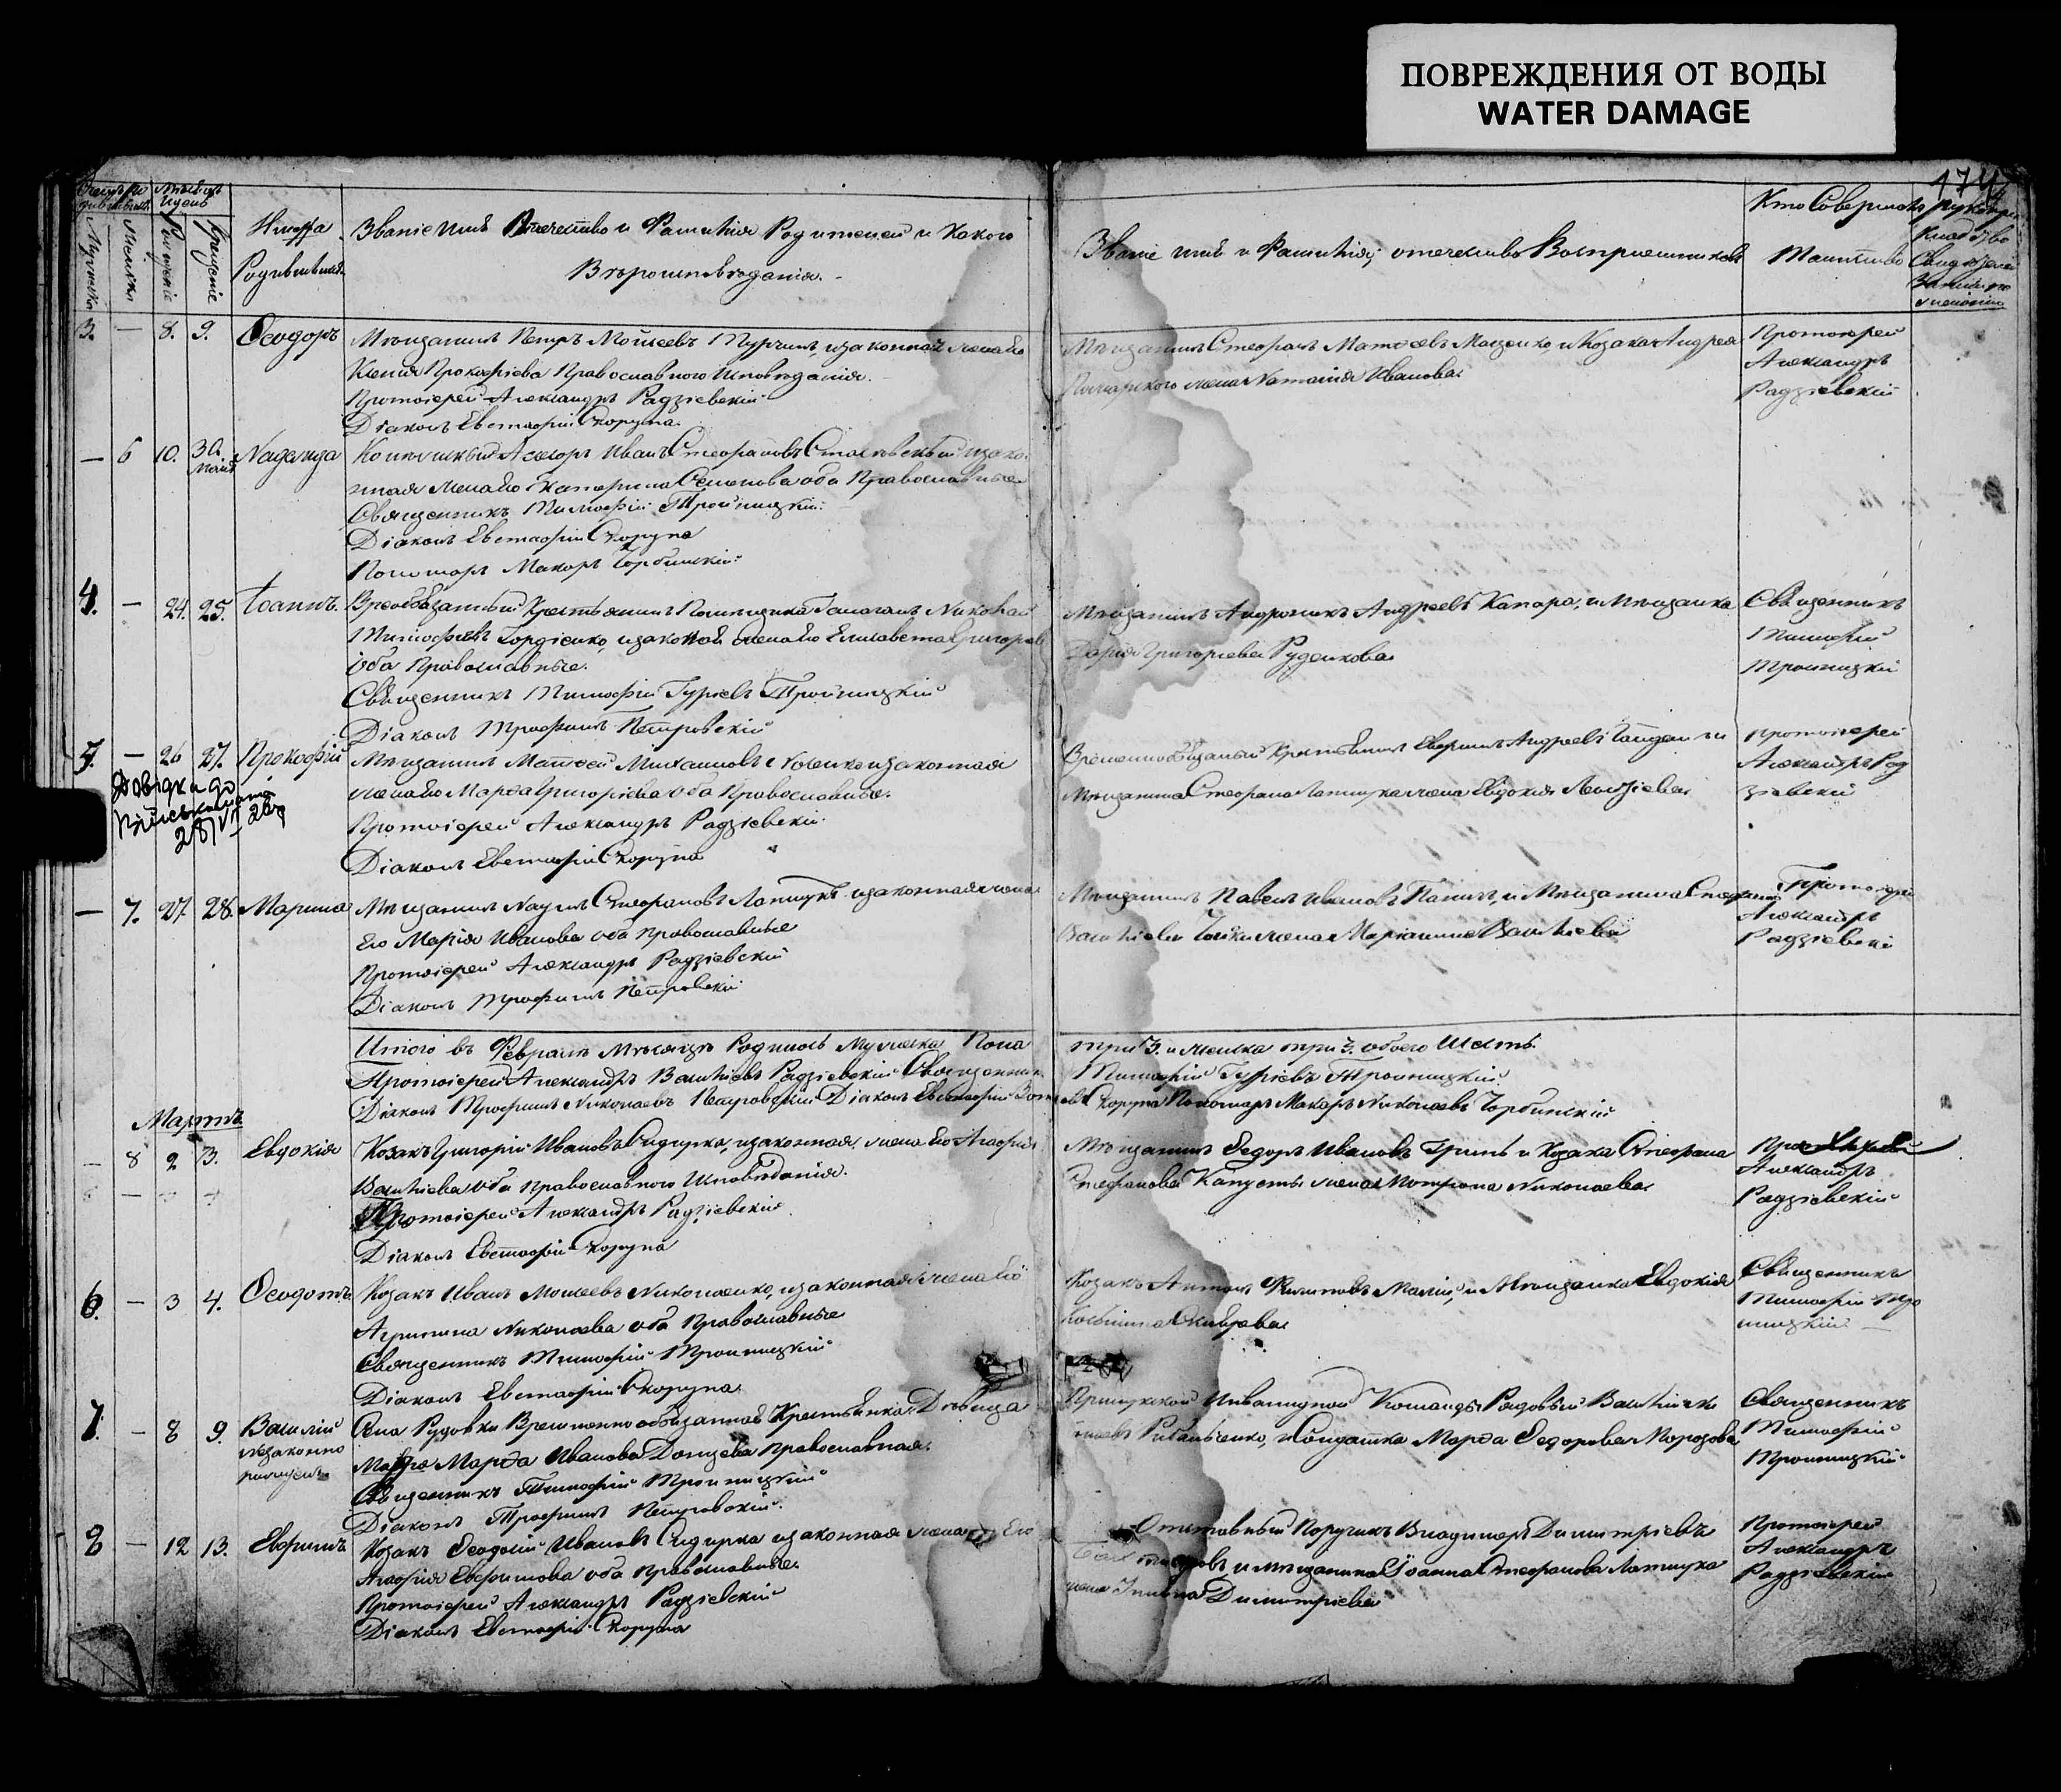 ПОВРЕЖДЕНИЯ ОТ ВОДЫ
WATER DAMAGE
174
Имена Родившихся.
Званіе имя Отечество и Фамилія Родителей и Какого
Вѣроисповѣданія.
Званіе имя и Фамилія, отечество Воспріемниковъ
Кто Совершалъ
Таинство
Рожденіе
Крещеніе
3. — 8. 9. Ѳеодоръ
Мѣщанинъ Петръ Моисеевъ, изаконная жена его
Ксенія Прокофіева Православного Исповѣданія.
Протоіерей Александръ Радзіевскій
Діаконъ Евстафій Скорупа.
Мѣщанинъ Стефанъ Матѳеевъ Мащенко, и Козака Андрея
жена Наталія Иванова
Протоіерей
Александръ
Радзіевскій
— 6 10. 30. Надежда
Иванъ Стефановъ изако-
нная жена его Катерина Семенова оба Православные
Священникъ Тимофій Тройницкій
Діаконъ Евстафій Скорупа
Пономарь Макаръ Горбинскій
4. — 24. 25. Іоаннъ.
Врем. обязанный Крестьянинъ Помѣщика Галагана Николай
Тимофіевъ Гордіенко, изаконная жена его Елисавета Григорьев
оба Православные.
Священникъ Тимофій Гурьевъ Тройницкій
Діаконъ Трофимъ Петровскій
Мѣщанинъ Андроникъ Андреевъ Капара, и Мѣщанка
Дарія Григоріева Руденкова
Священникъ
Тимофій
Тройницкій
5. — 26 27. Прокофій
Мѣщанинъ Матѳей Михаиловъ изаконная
жена его Марѳа Григоріева оба Православные.
Протоіерей Александръ Радзіевскій
Діаконъ Евстафій Скорупа
Временнообязаный Крестьянинъ Евфимъ Андреевъ и
Мѣщанина Стефана Латишка жена Евдокія
Протоіерей
Александръ Рад
зіевскій
Довідка до
28/VI
— 7. 27. 28. Марина
Мѣщанинъ Наумъ Стефановъ Латишъ изаконная жена
Его Марія Иванова оба православные
Протоіерей Александръ Радзіевскій
Діаконъ Трофимъ Петровскій
Мѣщанинъ Павелъ Ивановъ и Мѣщанина Стефана
Василіева жена Маріанна Василіева
Протоіерей
Александръ
Радзіевскі
Итого въ Февралѣ Мѣсяцѣ Родилось Мужеска Пола
три 3. и женска три 3. обоего Шесть.
Протоіерей Александръ Василіевъ Радзіевскій Священникъ
Тимофій Гурьевъ Тройницкій
Діаконъ Трофимъ Николаевъ Петровскій Діаконъ Евстафій
Скорупа Пономарь Макаръ Николаевъ Горбинскій
Мартъ
— 8 2 3. Евдокія
Козакъ Григорій Ивановъ Сидирка, изаконная жена его Агафія
Василіева оба православного Исповѣданія.
Протоіерей Александръ Радзіевскій
Діаконъ Евстафій Скорупа
Мѣщанинъ Ѳедоръ Ивановъ Гринь и Козака Стефана
Стефанова Капусты жена Мотрона Николаева
Александръ
Радзіевскій
6. — 3 4. Ѳеодотъ
Козакъ Иванъ Моисеевъ Николаенко, изаконная жена его
Агрипина Николаева оба Православные
Священникъ Тимофій Тройницкій
Діаконъ Евстафій Скорупа
Козакъ Антонъ Филиповъ Малій, и Мѣщанка Евдокія
Священникъ
Тимофій Тро
ницкій
7. — 8 9. Василій
незаконно
рожден.
Села Рудовки Временнообязанная Крестьянка Дѣвица
Марѳа Иванова Донцева православная.
Священникъ Тимофій Тройницкій
Діаконъ Трофимъ Петровскій
Прилукской Инвалидной Команды Рядовый Василій
и Солдатка Марѳа Ѳедорова Морозова
Священникъ
Тимофій
Тройницкій
8 — 12 13. Евфимъ
Козакъ Ѳеодосій Ивановъ Сидирка изаконная жена Его
Агафія Евфимова оба Православные.
Протоіерей Александръ Радзіевскій
Діаконъ Евстафій Скорупа
Отставный Поручикъ Владимеръ Димитріевъ
и мѣщанина Іоанна Стефанова Латишка
жена Димитріева
Протоіерей
Александръ
Радзіевскій